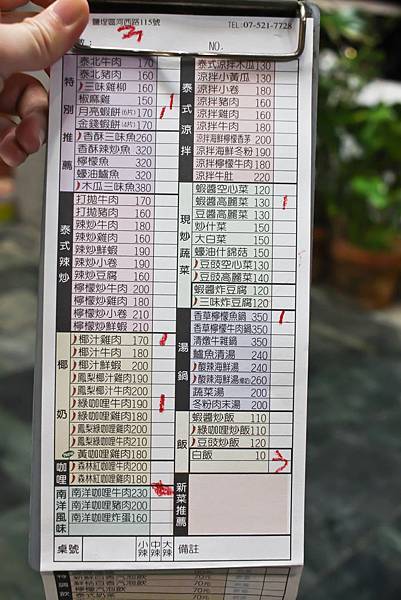 鹽埕區河西路115號 TEL:07-521-7728
3 NO.
特別推薦
泰北牛肉 170
泰北豬肉 160
三味雞柳 160
椒麻雞 150
月亮蝦餅(6片) 170
金錢蝦餅(4片) 170
香酥三味魚 260
香酥辣炒魚 320
檸檬魚 320
蠔油鱸魚 320
木瓜三味魚 380
泰式辣炒
打拋牛肉 170
打拋豬肉 160
辣炒牛肉 170
辣炒雞肉 160
辣炒鮮蝦 190
辣炒小卷 190
辣炒豆腐 160
檸檬炒牛肉 200
檸檬炒雞肉 180
檸檬炒小卷 210
檸檬炒鮮蝦 210
椰奶
椰汁雞肉 170
椰汁牛肉 180
椰汁鮮蝦 200
鳳梨椰汁雞肉 190
鳳梨椰汁牛肉 200
綠咖哩牛肉 190
綠咖哩雞肉 180
鳳梨綠咖哩雞肉 200
鳳梨綠咖哩牛肉 210
黃咖哩雞肉 180
咖哩
森林紅咖哩牛肉 210
森林紅咖哩雞肉 200
南洋風味
南洋咖哩牛肉 230
南洋咖哩豬肉 200
南洋咖哩炸蛋 160
桌號 小辣 中辣 大辣
泰式涼拌
泰式涼拌木瓜 130
涼拌小黃瓜 130
涼拌小卷 180
涼拌豬肉 160
涼拌雞肉 160
涼拌牛肉 180
涼拌海鮮檸檬香茅 200
涼拌海鮮冬粉 190
涼拌檸檬牛肉 180
涼拌牛肚 220
現炒蔬菜
蝦醬空心菜 120
蝦醬高麗菜 130
豆醬高麗菜 130
炒什菜 150
大白菜 150
蠔油什錦菇 150
豆豉空心菜 130
豆豉高麗菜 140
蝦醬炸豆腐 120
三味炸豆腐 120
湯鍋
香草檸檬魚鍋 350
香草檸檬牛肉鍋 350
清燉牛雜鍋 350
鱸魚清湯 240
酸辣海鮮湯 240
酸辣海鮮湯(椰奶) 260
蔬菜湯 200
冬粉肉末湯 200
飯
蝦醬炒飯 110
綠咖哩炒飯 110
豆豉炒飯 120
白飯 10
新菜推薦
備註